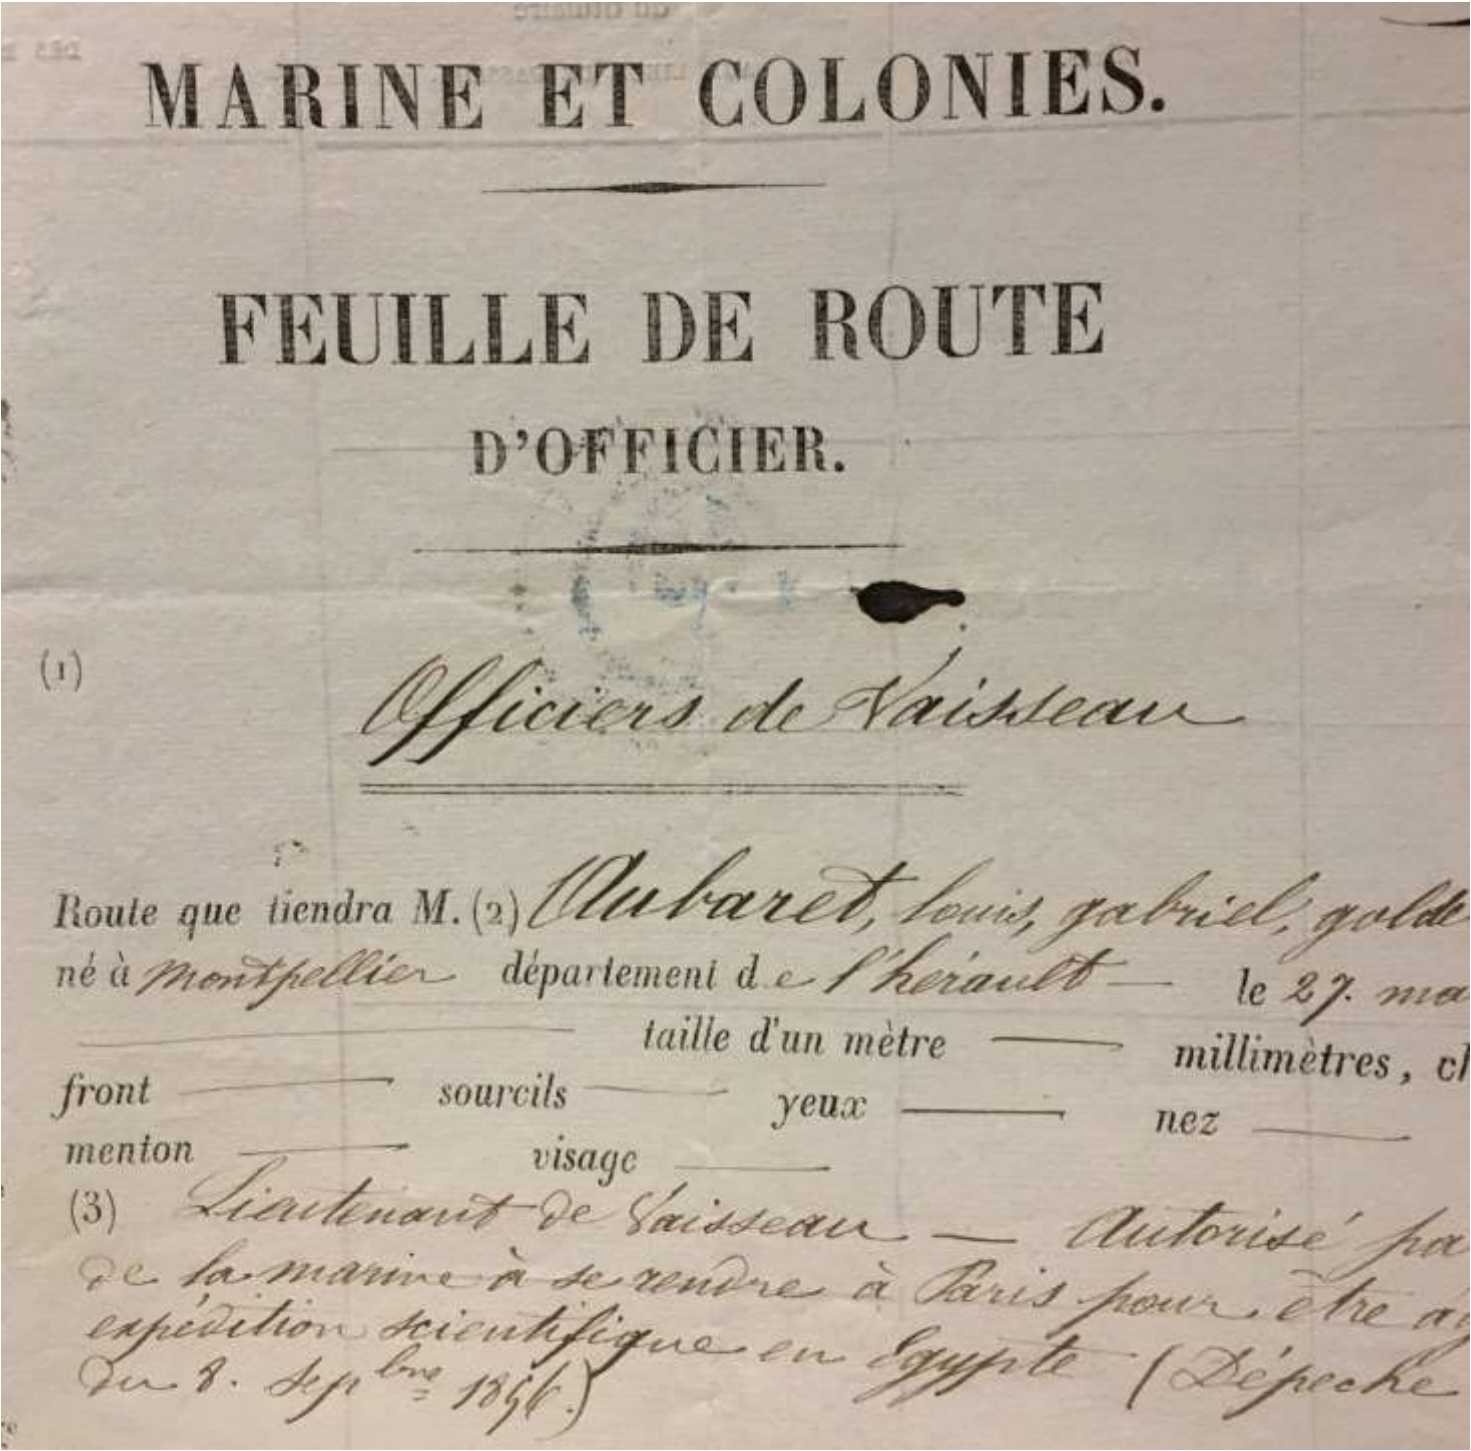 MARINE ET COLONIES.
FEUILLE DE ROUTE
D'OFFICIER.
(1)
Officiers de Vaisseau
Route que tiendra M. (2) Aubaret, louis, gabriel, galde
né à Montpellier département de l'hérault — le 27. ma
taille d'un mètre — millimètres, ch
front — sourcils — yeux — nez —
menton — visage —
(3) Lieutenant de Vaisseau — Autorisé pa
de la marine à se rendre à Paris pour être ag
expédition scientifique en Egypte (Dépeche
du 8. Sepbre 1856.)